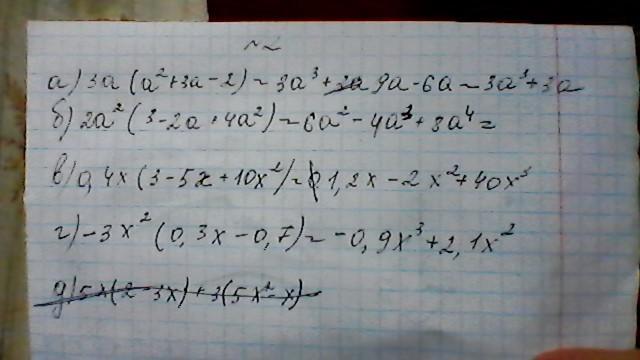 а) 3a (a²+3a-2) = 3a³ + 9a - 6a = 3a³ + 3a
б) 2a² (3-2a+4a²) = 6a² - 4a³ + 8a⁴ =
в) 0,4x (3-5x+10x²) = 1,2x - 2x² + 40x³
г) -3x² (0,3x-0,7) = -0,9x³ + 2,1x²
д) 5x(2-3x)+3(5x²-x)